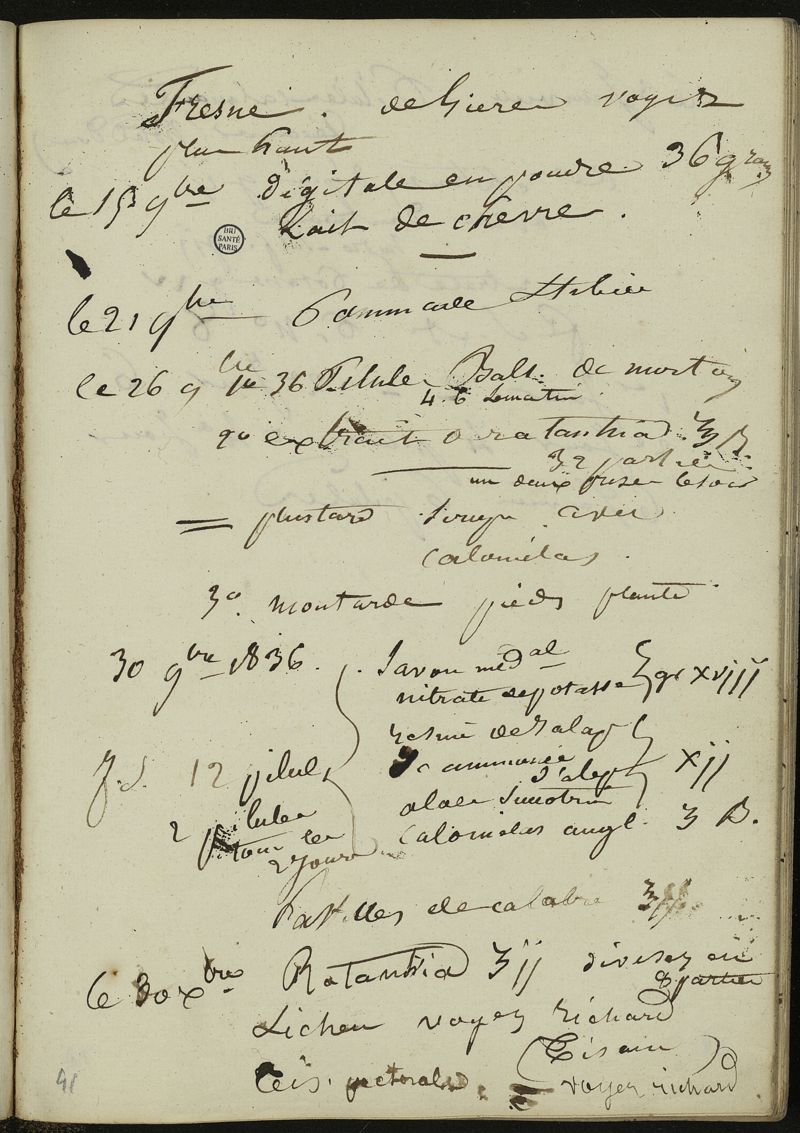 Fresne. de Gieren voyez
plus haut
le 15 9bre Digitale en poudre 36 grains
Lait de chevre.
BIU
SANTÉ
PARIS
le 21 9bre Pommade Stibiée
le 26 9bre 1º 36 Pilules Bals. de morton
4. 6 le matin
2º extrait de ratanhia ʒ ß.
32 parties
un deux prises le soir
= plus tard Sirop avec
calomélas.
3º. moutarde pieds plante
30 9bre 1836. Savon medal
nitrate de potasse } gr xviij
resine de Jalap
f.s. 12 pilules
Scammonée d'alep } xij
aloes sucotrin
2 pilules
tous les
2 jours
calomelas angl. ʒ ß.
Pastilles de calabre
le 30 xbre Ratanhia ʒij divisez en
8 parties
Lichen voyez richard
(Tisane)
pectorales
voyez richard
41